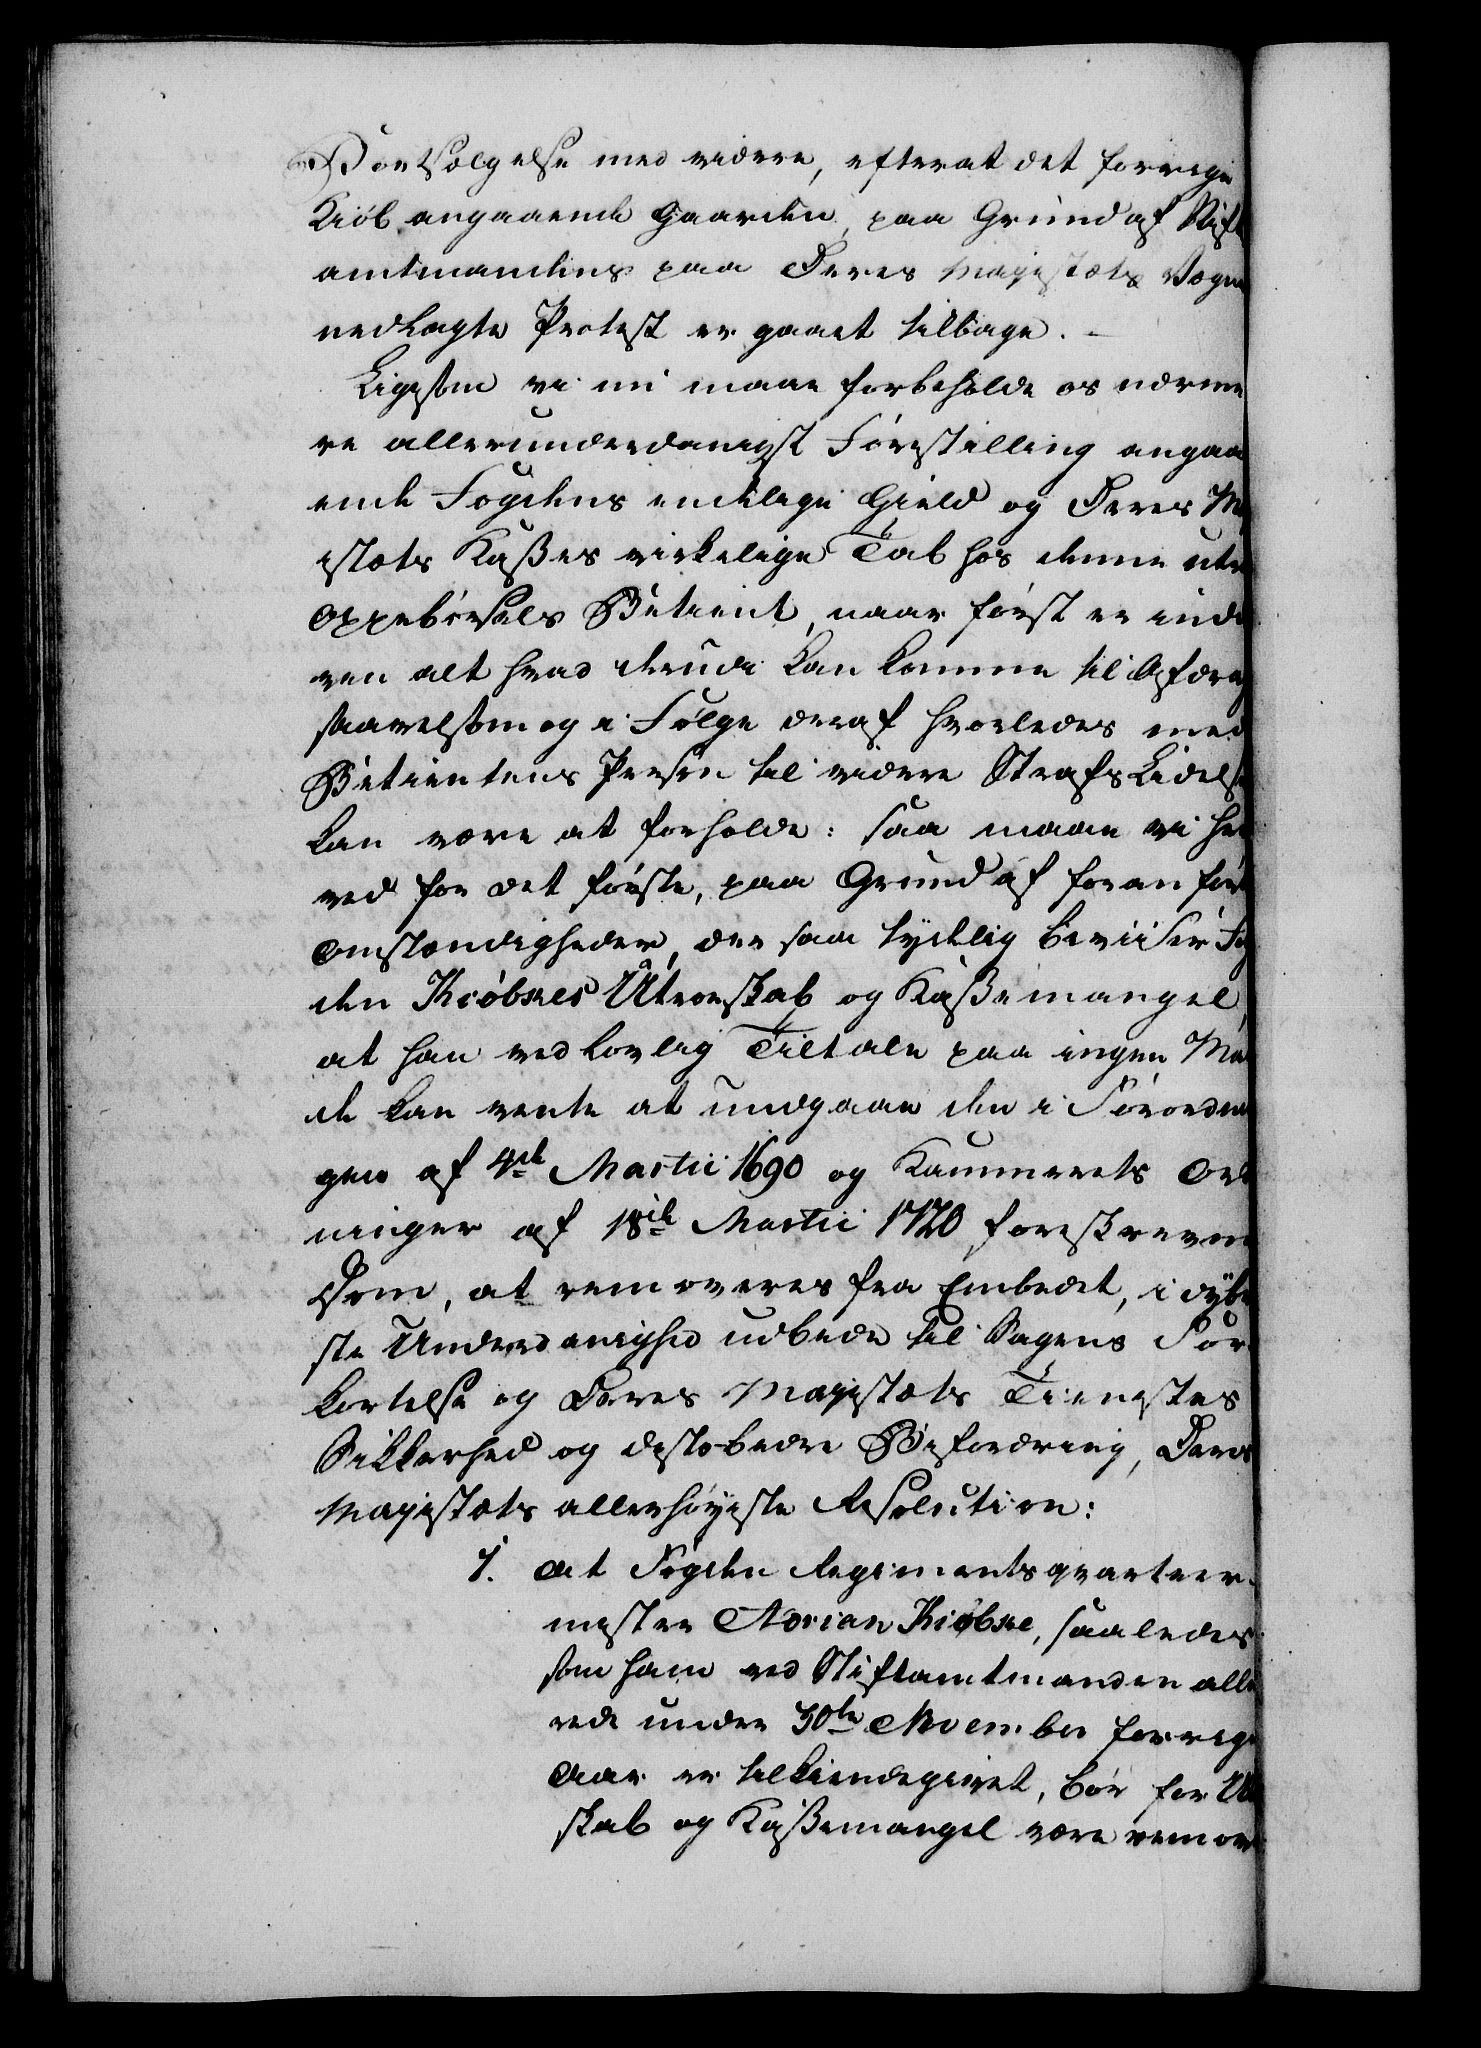 Bortsælgelse med videre, efterat det forrige
Kiöb angaaende Gaarden, paa Grund af Stift
amtmandens paa Deres Majestæts Vegne
nedlagte Protest er gaaet tilbage. –
Ligesom vi nu maae forbeholde os nærme
re allerunderdanigst Forestilling angaa
ende Fogdens endelige Gield og Deres Ma
jestæts Kaßes virkelige Tab hos denne utro
Oppebörsels Betient, naar först er indd
ven alt hvad derudi kan komme til Afdrag
saavelsom og i Fölge deraf hvorledes med
Betientens Person til videre Strafs Lidelse
kan være at forholde: saa maae vi her
ved for det förste, paa Grund af foranförte
Omstændigheder, der saa tydelig beviiser Fog
den Kiöbkes Utroeskab og Kaßemangel,
at han ved lovlig Tiltale paa ingen Maa
de kan vente at undgaae den i Forordnin
gen af 4de Martii 1690 og Kammerets Ord
ninger af 18de Martii 1720 foreskrevne
Dom, at removeres fra Embedet, i dybe
ste Underdanighed udbede til Sagens For-
kortelse og Deres Majestæts Tienestes
Sikkerhed og destobedre Befordring, Deres
Majestæts allerhöyeste Resolution:
1. At Fogden Regimentsqvarteer-
mester Adrian Kiöbke, saaledes
som ham ved Stiftamtmanden alle
rede under 30te November forrige
Aar er tilkiendegivet, bör for Ut
skab og Kaßemangel være remov